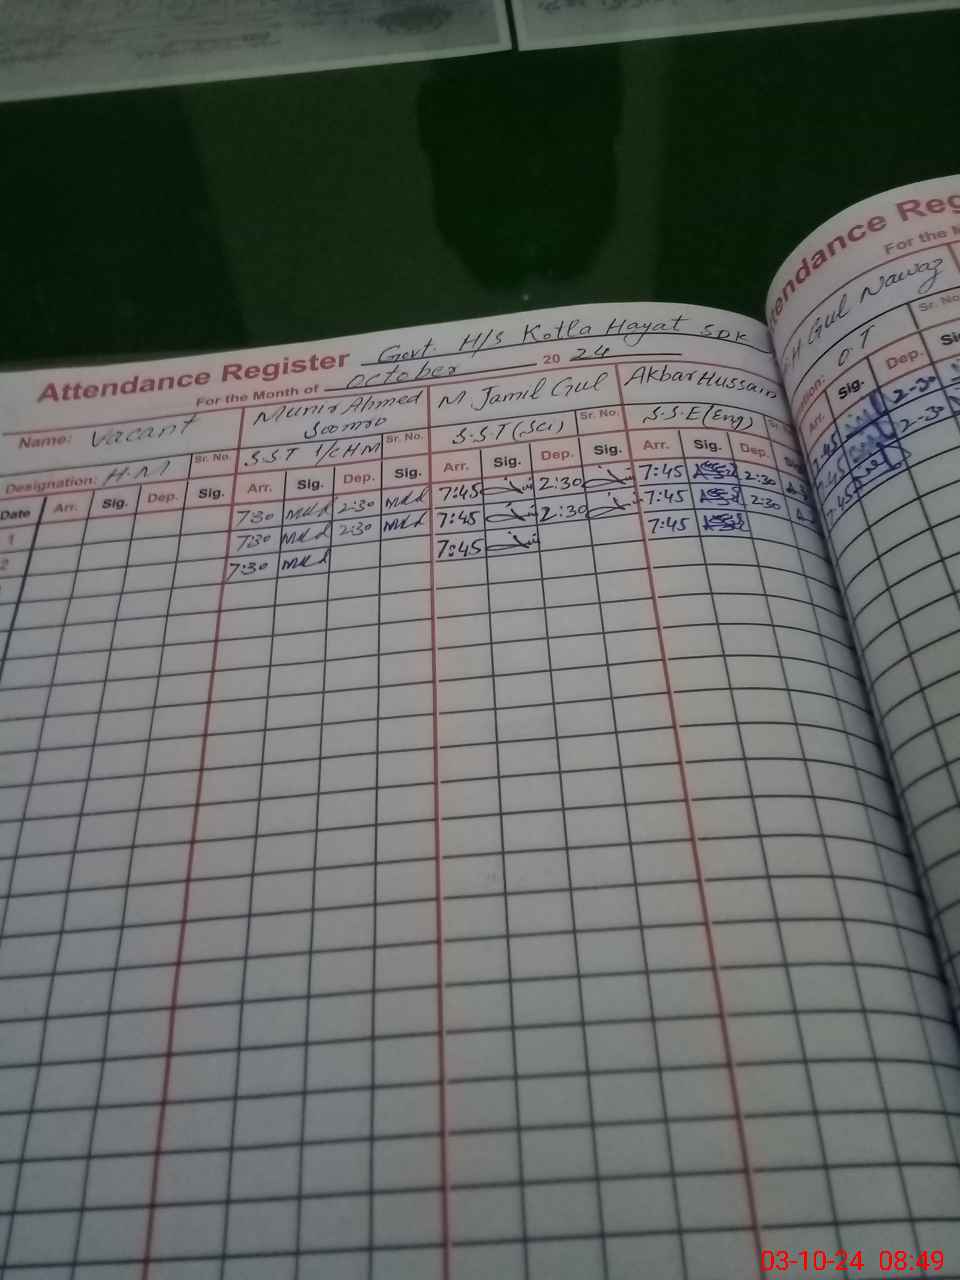 Attendance Register Govt. H/S Kotla Hayat SDK
For the Month of October 20 24
Name: Vacant Munir Ahmed Soomro M Jamil Gul Akbar Hussain
Designation: H.M Sr. No. S.S.T I/C HM Sr. No. S.S.T (Sci) Sr. No. S.S.E (Eng)
Date Arr. Sig. Dep. Sig. Arr. Sig. Dep. Sig. Arr. Sig. Dep. Sig. Arr. Sig. Dep.
1 7:30 2:30 7:45 2:30 7:45 2:30
2 7:30 2:30 7:45 2:30 7:45 2:30
7:30 7:45 7:45
tendance Reg
For the M
Gul Nawaz
O.T Sr. No.
Arr. Sig. Dep.
7:45 2:30
7:45 2:30
7:45
03-10-24 08:49